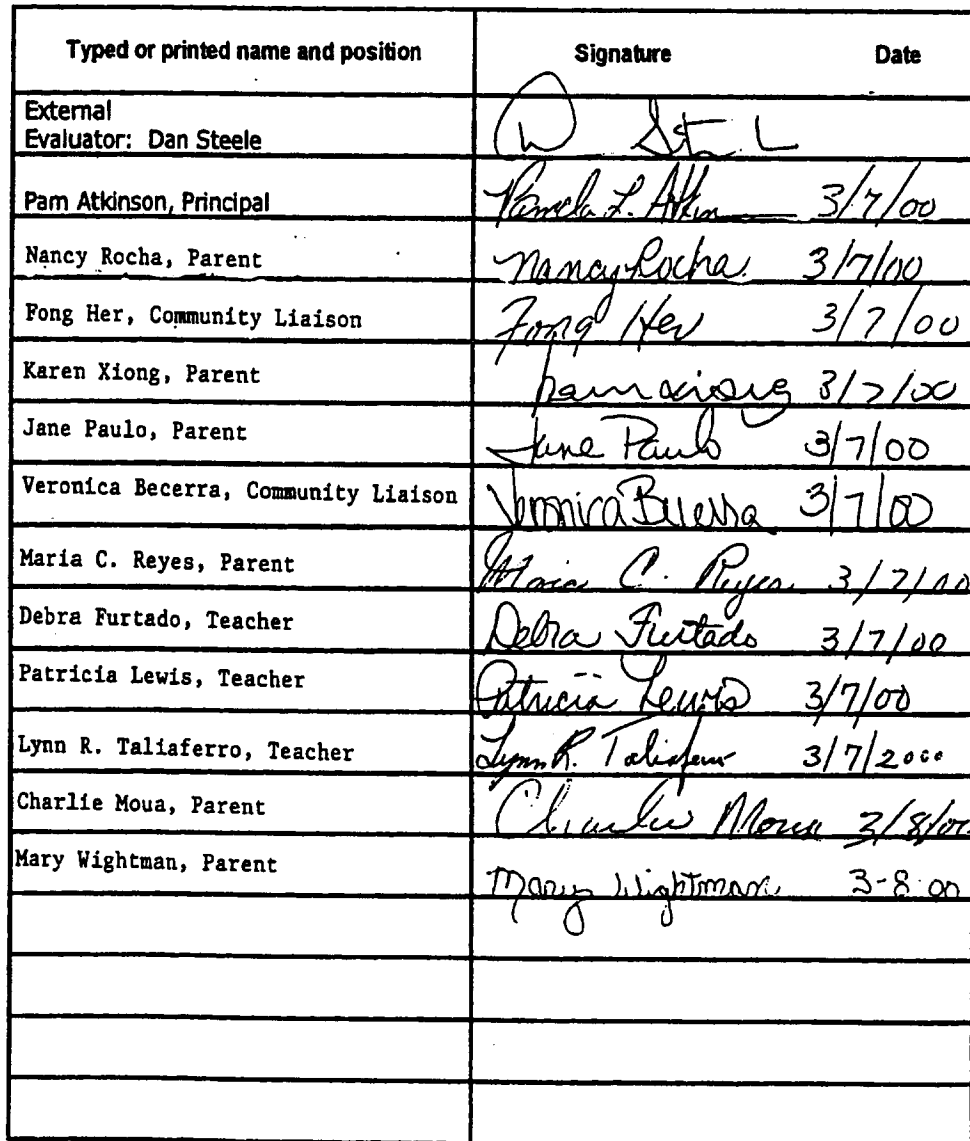 Typed or printed name and position Signature Date
External
Evaluator: Dan Steele
Pam Atkinson, Principal Pamela L. Atkin 3/7/00
Nancy Rocha, Parent Nancy Rocha 3/7/00
Fong Her, Community Liaison Fong Her 3/7/00
Karen Xiong, Parent xiong 3/7/00
Jane Paulo, Parent Jane Paulo 3/7/00
Veronica Becerra, Community Liaison Veronica Becerra 3/7/00
Maria C. Reyes, Parent Maria C. Reyes 3/7/00
Debra Furtado, Teacher Debra Furtado 3/7/00
Patricia Lewis, Teacher Patricia Lewis 3/7/00
Lynn R. Taliaferro, Teacher Lynn R. Taliaferro 3/7/2000
Charlie Moua, Parent Charlie Moua 3/8/00
Mary Wightman, Parent Mary Wightman 3-8-00